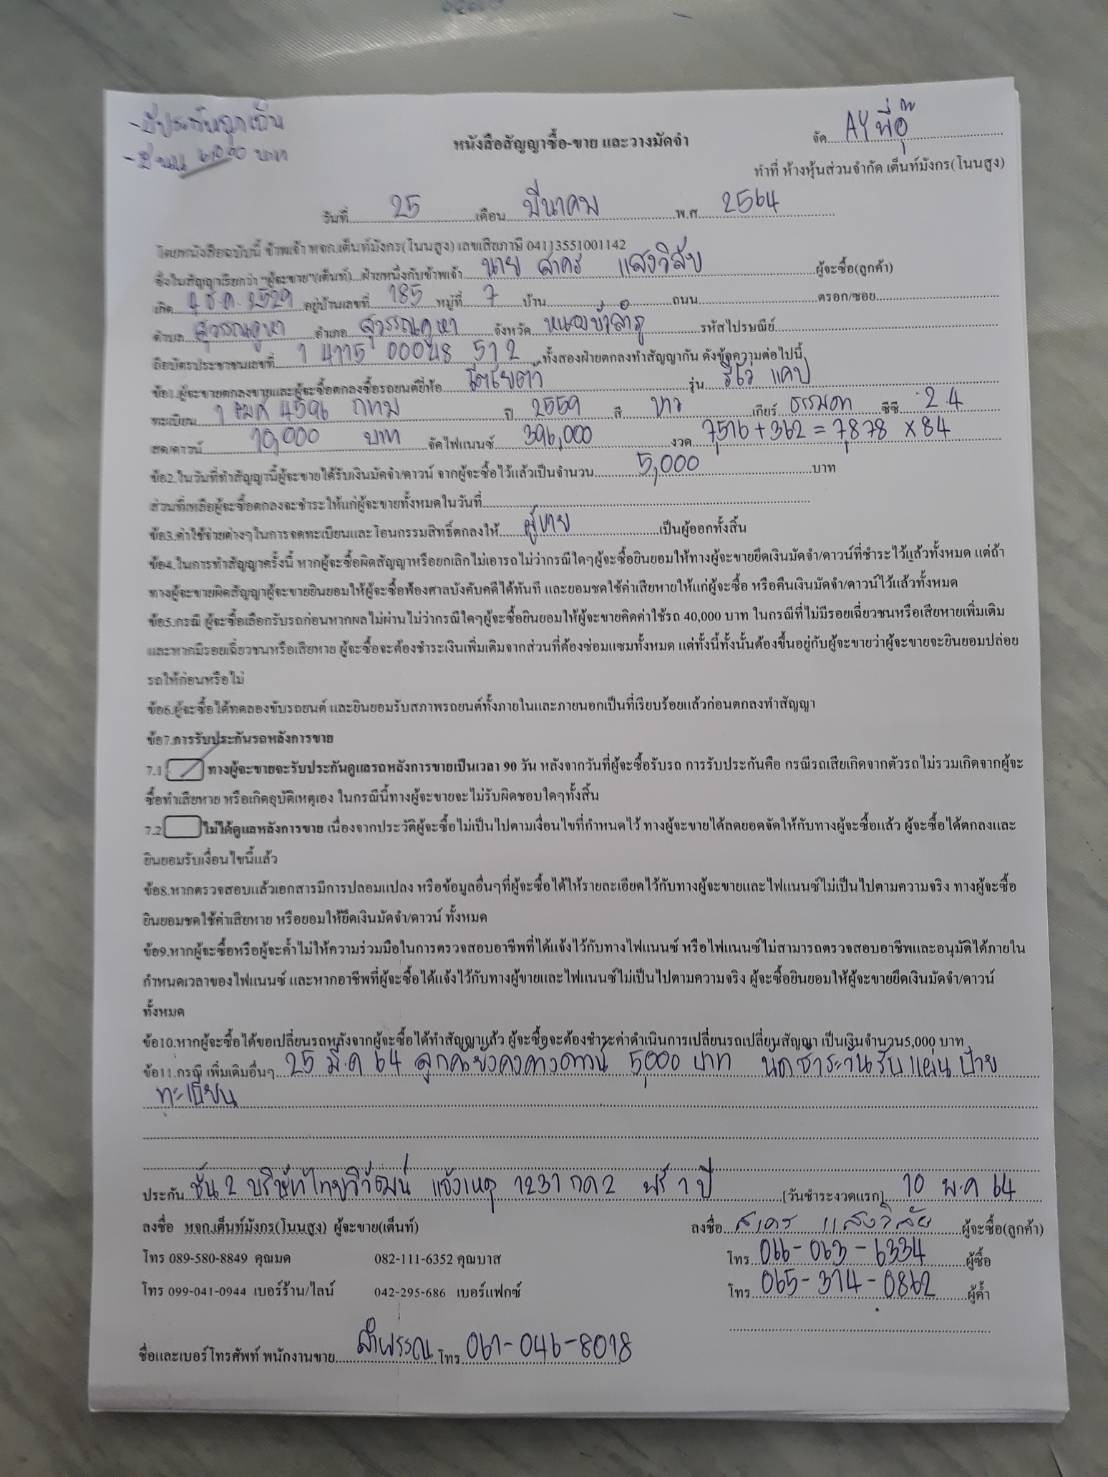 -มีประกันฉุกเฉิน
จัด AY พี่อุ๊
หนังสือสัญญาซื้อ-ขาย และวางมัดจำ
ทำที่ ห้างหุ้นส่วนจำกัด เต็นท์มังกร(โนนสูง)
วันที่ 25 เดือน มีนาคม พ.ศ. 2564
โดยหนังสือฉบับนี้ ข้าพเจ้า หจก.เต็นท์มังกร(โนนสูง) เลขเสียภาษี 04113551001142
ซึ่งในสัญญาเรียกว่า "ผู้จะขาย"(เต็นท์) ฝ่ายหนึ่งกับข้าพเจ้า นาย สาคร แสงวิลัย ผู้จะซื้อ(ลูกค้า)
เกิด 4 ธ.ค. 2529 อยู่บ้านเลขที่ 185 หมู่ที่ 7 บ้าน ถนน ตรอก/ซอย
ตำบล สุวรรณคูหา อำเภอ สุวรรณคูหา จังหวัด หนองบัวลำภู รหัสไปรษณีย์
ถือบัตรประชาชนเลขที่ 1 4115 00048 512 ทั้งสองฝ่ายตกลงทำสัญญากัน ดังข้อความต่อไปนี้
ข้อ1.ผู้จะขายตกลงขายและผู้จะซื้อตกลงซื้อรถยนต์ยี่ห้อ โตโยต้า รุ่น รีโว่ แคป
ทะเบียน 1 ฒศ 4596 กทม ปี 2559 สี ขาว เกียร์ ธรรมดา ซีซี 2.4
สด/ดาวน์ 10,000 บาท จัดไฟแนนซ์ 396,000 งวด 7,516+362 = 7,878 x 84
ข้อ2.ในวันที่ทำสัญญานี้ผู้จะขายได้รับเงินมัดจำ/ดาวน์ จากผู้จะซื้อไว้แล้วเป็นจำนวน 5,000 บาท
ส่วนที่เหลือผู้จะซื้อตกลงจะชำระให้แก่ผู้จะขายทั้งหมดในวันที่
ข้อ3.ค่าใช้จ่ายต่างๆในการจดทะเบียนและโอนกรรมสิทธิ์ตกลงให้ ผู้ขาย เป็นผู้ออกทั้งสิ้น
ข้อ4.ในการทำสัญญาครั้งนี้ หากผู้จะซื้อผิดสัญญาหรือยกเลิกไม่เอารถไม่ว่ากรณีใดๆผู้จะซื้อยินยอมให้ทางผู้จะขายยึดเงินมัดจำ/ดาวน์ที่ชำระไว้แล้วทั้งหมด แต่ถ้า
ทางผู้จะขายผิดสัญญาผู้จะขายยินยอมให้ผู้จะซื้อฟ้องศาลบังคับคดีได้ทันที และยอมชดใช้ค่าเสียหายให้แก่ผู้จะซื้อ หรือคืนเงินมัดจำ/ดาวน์ไว้แล้วทั้งหมด
ข้อ5.กรณี ผู้จะซื้อเลือกรับรถก่อนหากผลไม่ผ่านไม่ว่ากรณีใดๆผู้จะซื้อยินยอมให้ผู้จะขายคิดค่าใช้รถ 40,000 บาท ในกรณีที่ไม่มีรอยเฉี่ยวชนหรือเสียหายเพิ่มเติม
และหากมีรอยเฉี่ยวชนหรือเสียหาย ผู้จะซื้อจะต้องชำระเงินเพิ่มเติมจากส่วนที่ต้องซ่อมแซมทั้งหมด แต่ทั้งนี้ทั้งนั้นต้องขึ้นอยู่กับผู้จะขายว่าผู้จะขายจะยินยอมปล่อย
รถให้ก่อนหรือไม่
ข้อ6.ผู้จะซื้อได้ทดลองขับรถยนต์ และยินยอมรับสภาพรถยนต์ทั้งภายในและภายนอกเป็นที่เรียบร้อยแล้วก่อนตกลงทำสัญญา
ข้อ7.การรับประกันรถหลังการขาย
7.1 ทางผู้จะขายจะรับประกันดูแลรถหลังการขายเป็นเวลา 90 วัน หลังจากวันที่ผู้จะซื้อรับรถ การรับประกันคือ กรณีรถเสียเกิดจากตัวรถ ไม่รวมเกิดจากผู้จะ
ซื้อทำเสียหาย หรือเกิดอุบัติเหตุเอง ในกรณีนี้ทางผู้จะขายจะไม่รับผิดชอบใดๆทั้งสิ้น
7.2 ไม่ได้ดูแลหลังการขาย เนื่องจากประวัติผู้จะซื้อไม่เป็นไปตามเงื่อนไขที่กำหนดไว้ ทางผู้จะขายได้ลดยอดจัดให้กับทางผู้จะซื้อแล้ว ผู้จะซื้อได้ตกลงและ
ยินยอมรับเงื่อนไขนี้แล้ว
ข้อ8.หากตรวจสอบแล้วเอกสารมีการปลอมแปลง หรือข้อมูลอื่นๆที่ผู้จะซื้อได้ให้รายละเอียดไว้กับทางผู้จะขายและไฟแนนซ์ไม่เป็นไปตามความจริง ทางผู้จะซื้อ
ยินยอมชดใช้ค่าเสียหาย หรือยอมให้ยึดเงินมัดจำ/ดาวน์ ทั้งหมด
ข้อ9.หากผู้จะซื้อหรือผู้จะค้ำไม่ให้ความร่วมมือในการตรวจสอบอาชีพที่ได้แจ้งไว้กับทางไฟแนนซ์ หรือไฟแนนซ์ไม่สามารถตรวจสอบอาชีพและอนุมัติได้ภายใน
กำหนดเวลาของไฟแนนซ์ และหากอาชีพที่ผู้จะซื้อได้แจ้งไว้กับทางผู้ขายและไฟแนนซ์ไม่เป็นไปตามความจริง ผู้จะซื้อยินยอมให้ผู้จะขายยึดเงินมัดจำ/ดาวน์
ทั้งหมด
ข้อ10.หากผู้จะซื้อได้ขอเปลี่ยนรถหลังจากผู้จะซื้อได้ทำสัญญาแล้ว ผู้จะซื้อจะต้องชำระค่าดำเนินการเปลี่ยนรถเปลี่ยนสัญญา เป็นเงินจำนวน5,000 บาท
ข้อ11.กรณี เพิ่มเติมอื่นๆ 25 มี.ค 64 ลูกค้ายังคงค้างดาวน์ 5,000 บาท นัดชำระวันรับแผ่นป้าย
ทะเบียน
ประกัน ชั้น 2 บริษัทไทยวิวัฒน์ แจ้งเหตุ 1231 กด 2 ฟรี 1 ปี [วันชำระงวดแรก] 10 พ.ค 64
ลงชื่อ หจก.เต็นท์มังกร(โนนสูง) ผู้จะขาย(เต็นท์) ลงชื่อ สาคร แสงวิลัย ผู้จะซื้อ(ลูกค้า)
โทร 089-580-8849 คุณมด 082-111-6352 คุณบาส โทร 066-063-6334 ผู้ซื้อ
โทร 099-041-0944 เบอร์ร้าน/ไลน์ 042-295-686 เบอร์แฟกซ์ โทร 065-314-0862 ผู้ค้ำ
ชื่อและเบอร์โทรศัพท์ พนักงานขาย ลำพรรณ โทร 061-046-8018